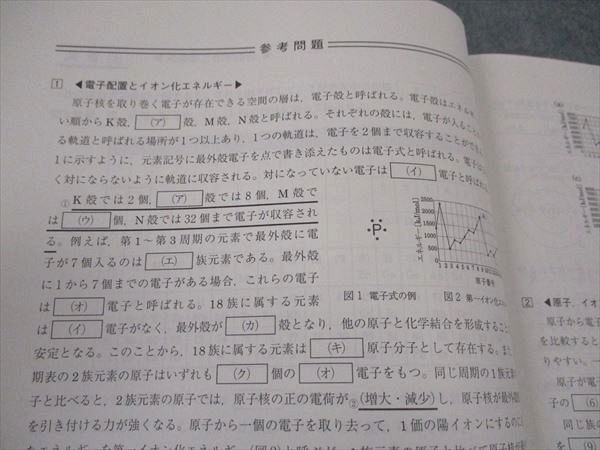 参考問題
1 ◀電子配置とイオン化エネルギー▶
原子核を取り巻く電子が存在できる空間の層は，電子殻と呼ばれる。電子殻はエネルギー
い順から K殻，(ア)殻，M殻，N殻と呼ばれる。それぞれの殻には，電子が入ること
る軌道と呼ばれる場所が1つ以上あり，1つの軌道は，電子を2個まで収容することができ
1に示すように，元素記号に最外殻電子を点で書き添えたものは電子式と呼ばれる。電子は
く対にならないように軌道に収容される。対になっていない電子は (イ) 電子と呼ばれ
① K殻では2個，(ア)殻では8個，M殻で
は (ウ) 個，N殻では32個まで電子が収容され
る。例えば，第1～第3周期の元素で最外殻に電
子が7個入るのは (エ) 族元素である。最外殻
に1から7個までの電子がある場合，これらの電子
は (オ) 電子と呼ばれる。18族に属する元素
は (イ) 電子がなく，最外殻が (カ) 殻となり，他の原子と化学結合を形成すること
安定となる。このことから，18族に属する元素は (キ) 原子分子として存在する。また
期表の2族元素の原子はいずれも (ク) 個の (オ) 電子をもつ。同じ周期の1族元
子と比べると，2族元素の原子では，原子核の正の電荷が②(増大・減少)し，原子核が最外殻
を引き付ける力が強くなる。原子から一個の電子を取り去って，1価の陽イオンにするのに
P
図1 電子式の例
エネルギー〔kJ/mol〕
2500
2000
1500
1000
500
0
原子番号
図2 第一イオン化エ
2 ◀原子，イオ
原子から電子
を比較すると
りやすい。一
原子が電子
子の (6)
同じ族の
を (9)